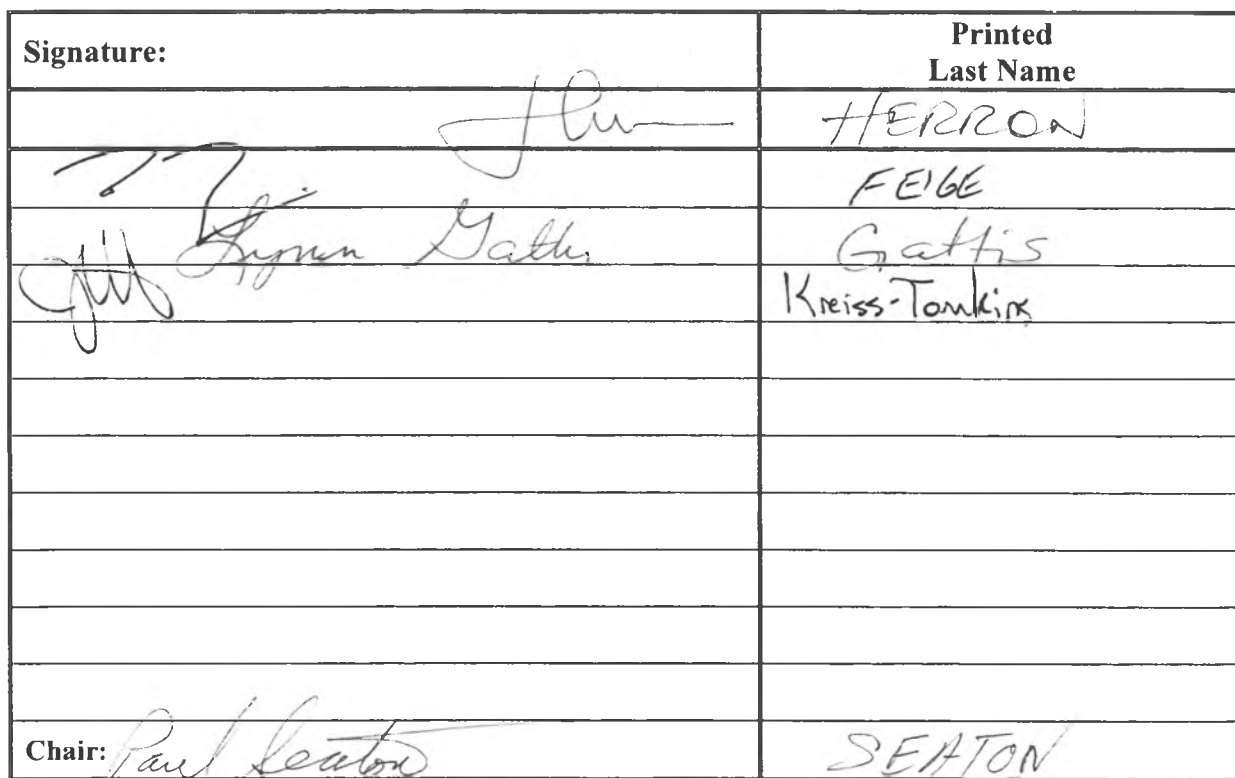 Signature:
Printed
Last Name
HERRON
FEIGE
Lynn Gattis
Gattis
Kreiss-Tomkins
Chair: Paul Seaton
SEATON